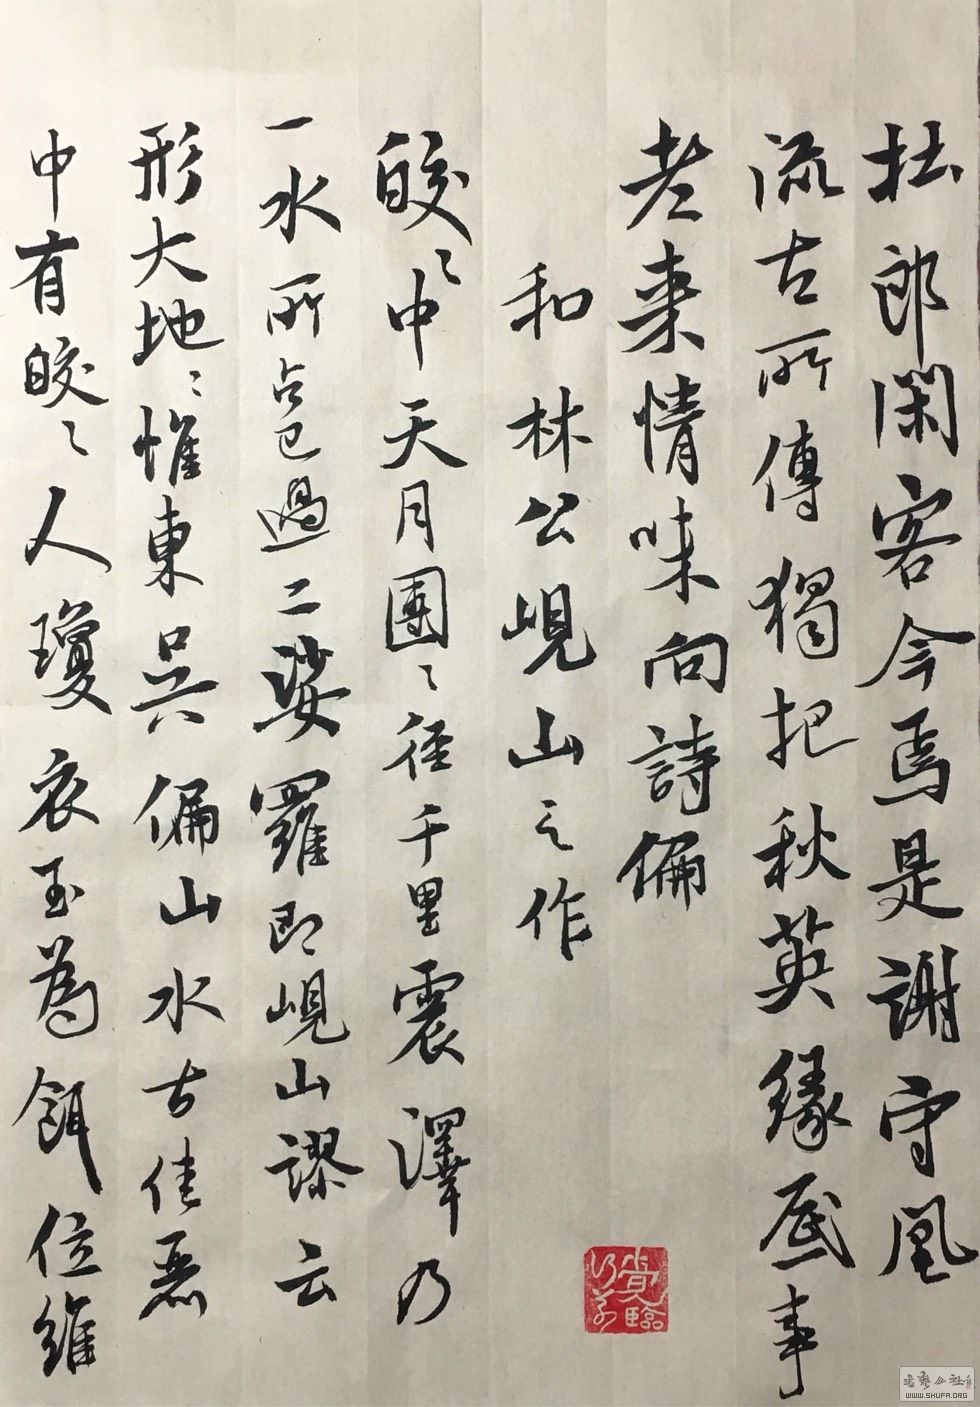 杜郎閑客今焉是謝守風
流古所傳獨把秋英緣底事
老來情味向詩偏
和林公峴山之作
皎〻中天月團〻徑千里震澤乃
一水所占已過二娑羅即峴山謬云
形大地〻惟東吳偏山水古佳麗
中有皎〻人瓊衣玉為餌位維
WWW.SHUFA.ORG